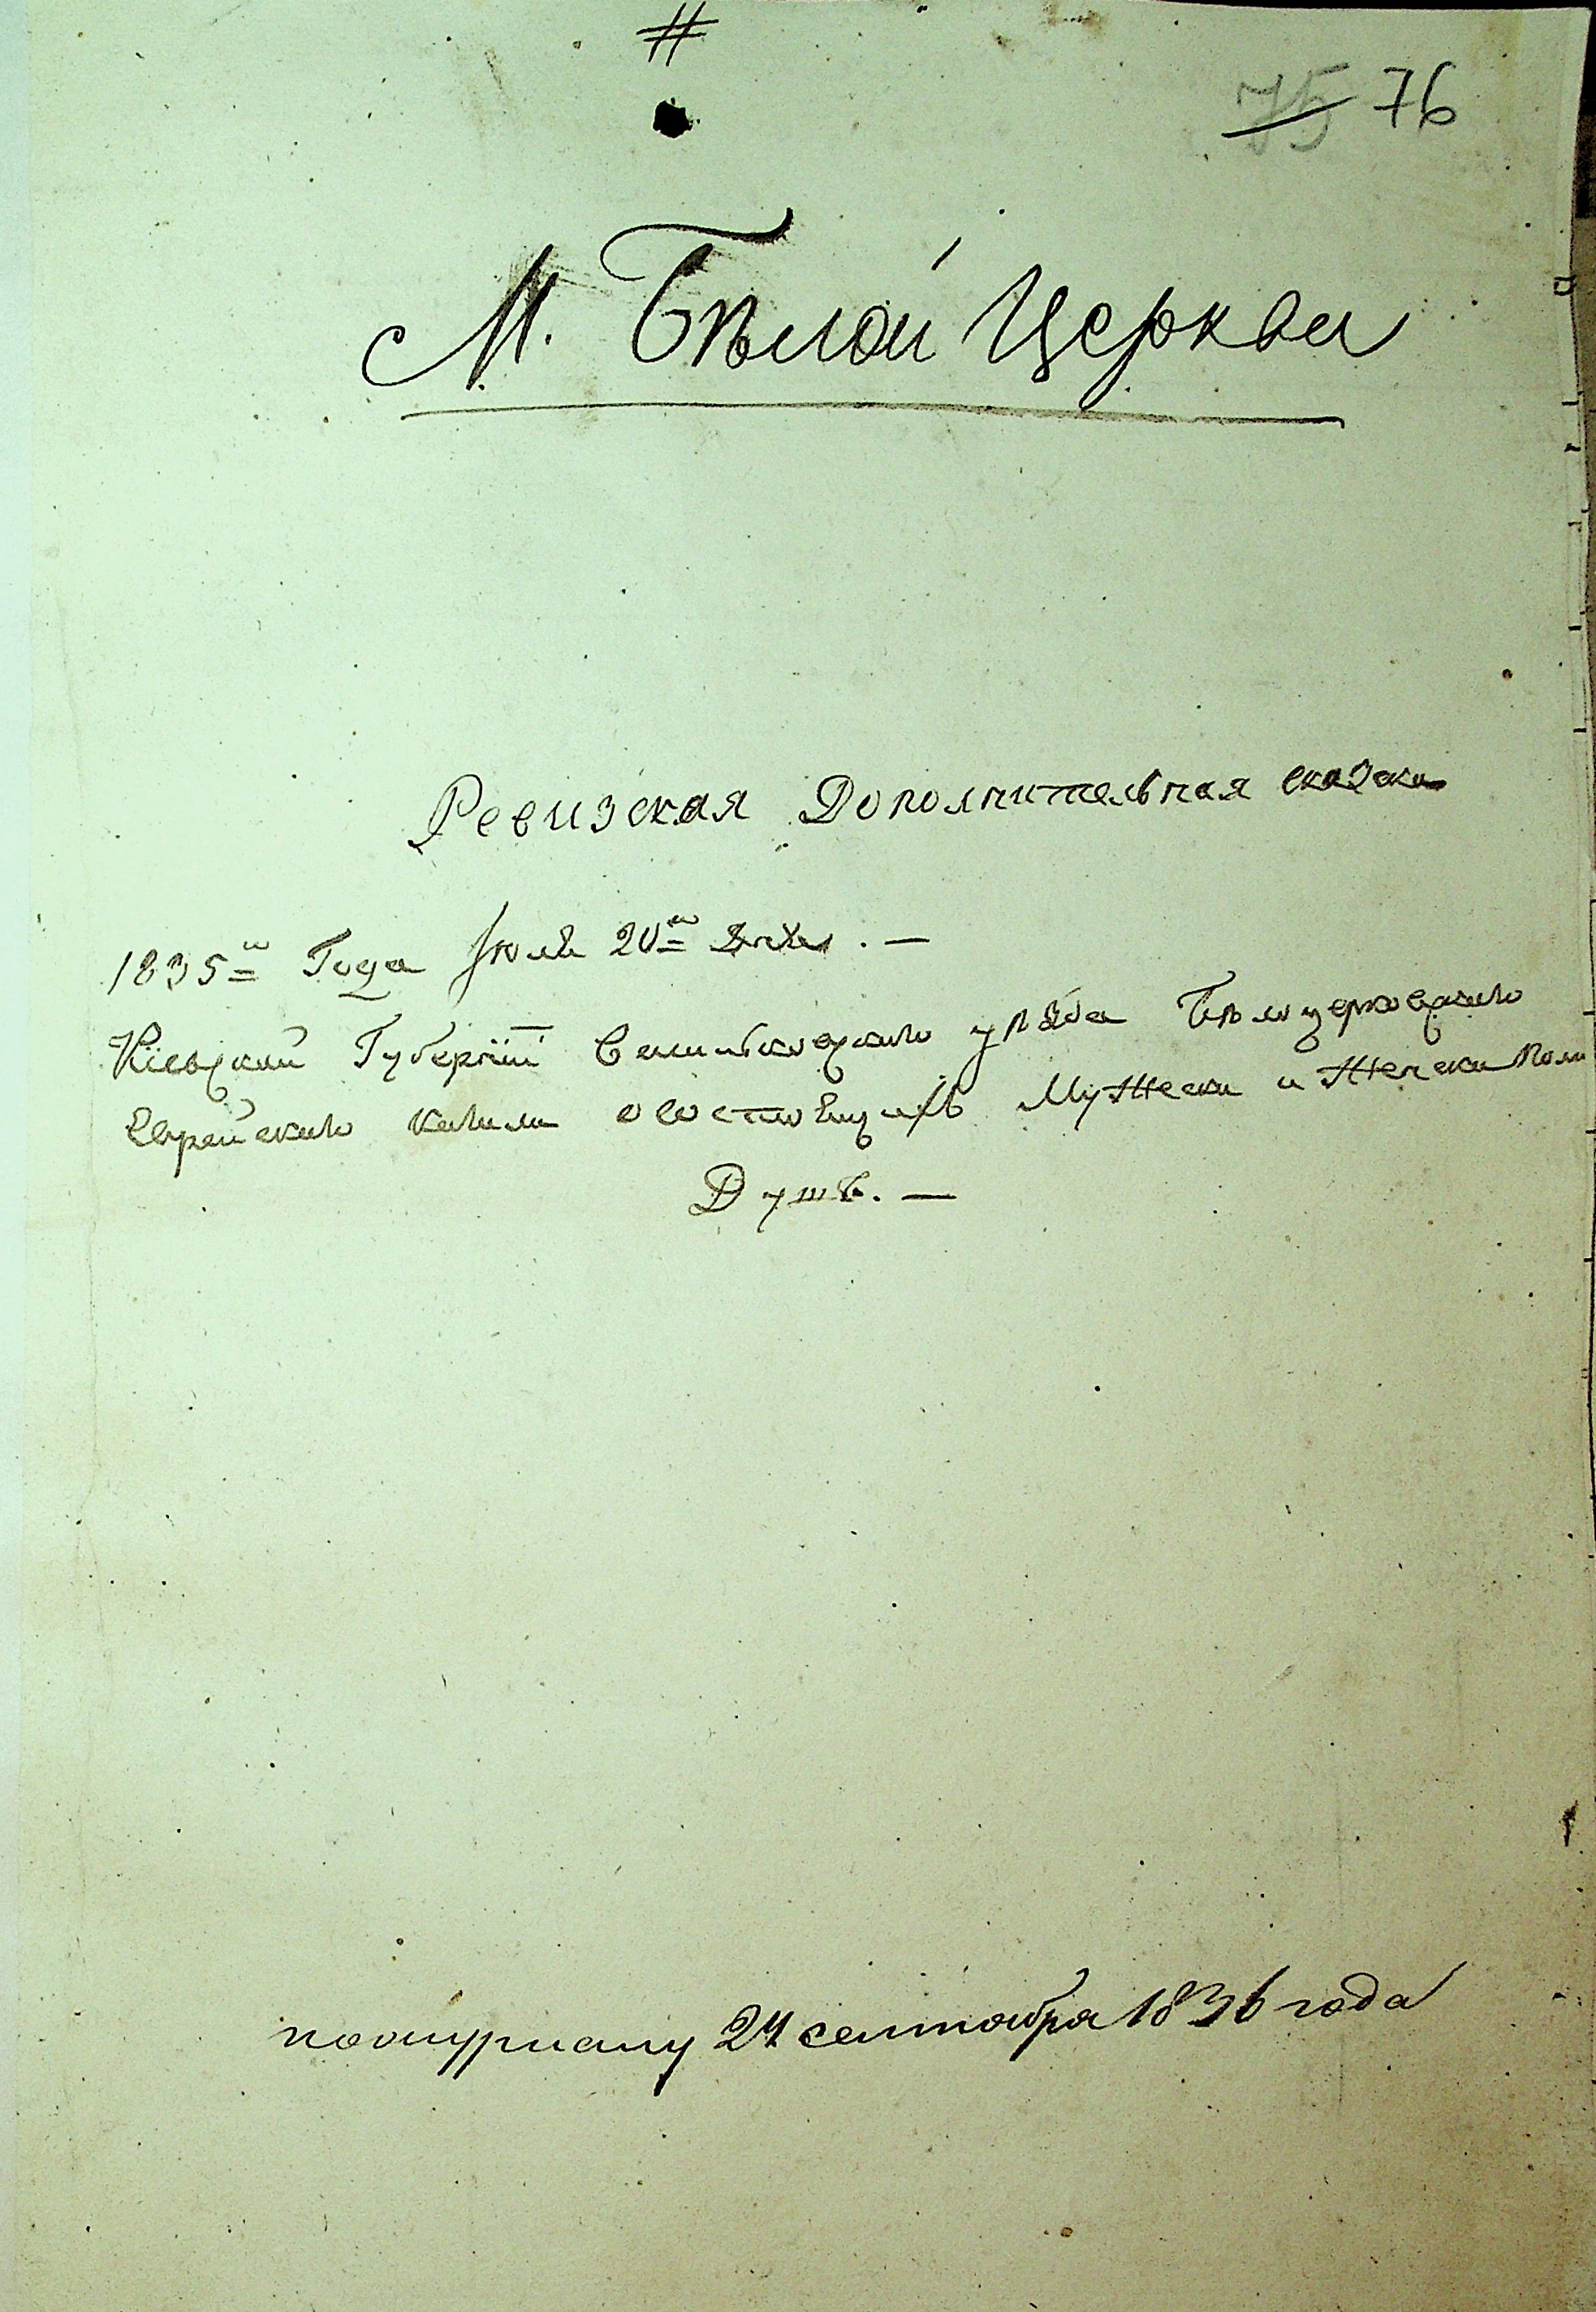 #
75 76
М. Бѣлой Церкви
Ревизская Дополнительная сказка
1835го Года Июля 20го дня. —
Кіевской Губерніи Васильковскаго уѣзда Бѣлоцерковскаго
Еврейскаго кагала о состоящихъ Мужеска и Женска пола
Душъ. —
по журналу 24 сентября 1836 года